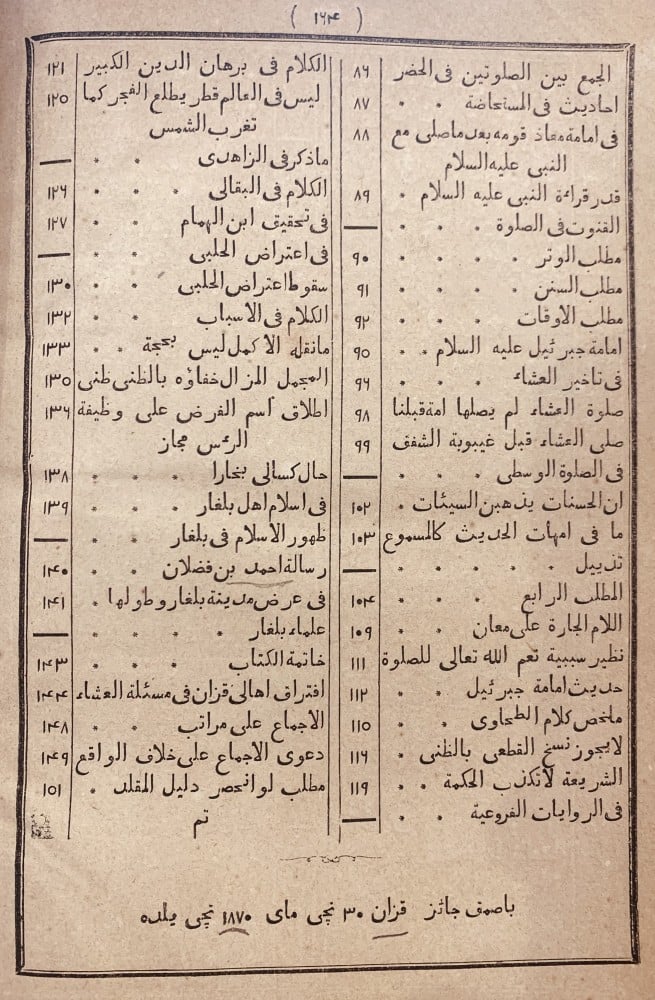 ( ١٦٤ )
الجمع بين الصلوتين فى الحضر ٨٦
احاديث فى المستحاضة ٨٧
فى امامة معاذ قومه بعد ما صلى مع ٨٨
النبى عليه السلام
قدر قراءة النبى عليه السلام ٨٩
القنوت فى الصلوة —
مطلب الوتر ٩٠
مطلب السنن ٩١
مطلب الاوقات ٩٢
امامة جبرئيل عليه السلام ٩٥
فى تاخير العشاء ٩٦
صلوة العشاء لم يصلها امة قبلنا ٩٨
صلى العشاء قبل غيبوبة الشفق ٩٩
فى الصلوة الوسطى —
ان الحسنات يذهبن السيئات ١٠٢
ما فى امهات الحديث كالمسموع ١٠٣
تذييل —
المطلب الرابع ١٠٤
اللام الجارة على معان ١٠٩
نظير سببية نعم الله تعالى للصلوة ١١١
حديث امامة جبرئيل ١١٢
ملخص كلام الطحاوى ١١٥
لا يجوز نسخ القطعى بالظنى ١١٦
الشريعة لا تكذب الحكمة ١١٩
فى الروايات الفروعية —
الكلام فى برهان الدين الكبير ١٢١
ليس فى العالم قطر يطلع الفجر كما ١٢٥
تغرب الشمس
ما ذكر فى الزاهدى —
الكلام فى البقالى ١٢٦
فى تحقيق ابن الهمام ١٢٧
فى اعتراض الحلبى —
سقوط اعتراض الحلبى ١٣٠
الكلام فى الاسباب ١٣٢
ما نقله الاكمل ليس بحجة ١٣٣
المجمل المزال خفاؤه بالظنى ظنى ١٣٥
اطلاق اسم الفرض على وظيفة ١٣٦
الرءس مجاز
حال كسالى بخارا ١٣٨
فى اسلام اهل بلغار ١٣٩
ظهور الاسلام فى بلغار —
رسالة احمد بن فضلان ١٤٠
فى عرض مدينة بلغار وطولها ١٤١
علماء بلغار —
خاتمة الكتاب ١٤٣
افتراق اهالى قزان فى مسئلة العشاء ١٤٤
الاجماع على مراتب ١٤٨
دعوى الاجماع على خلاف الواقع ١٤٩
مطلب لو انحصر دليل المقلد ١٥١
تم
باصمق جائز قزان ٣٠ نچى ماى ١٨٧٠ نچى يلده